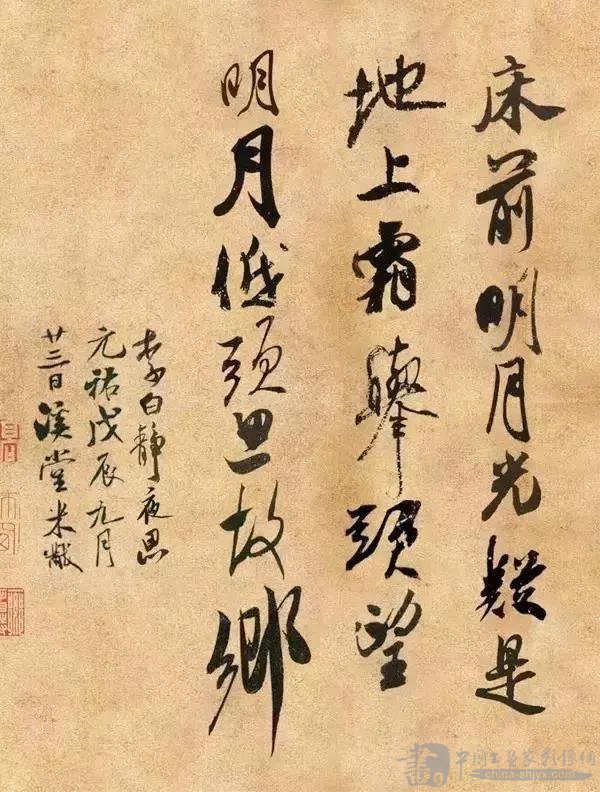 床前明月光疑是
地上霜舉頭望
明月低頭思故鄉
李白靜夜思
元祐戊辰九月
廿三日溪堂米黻
china-shjyx.com